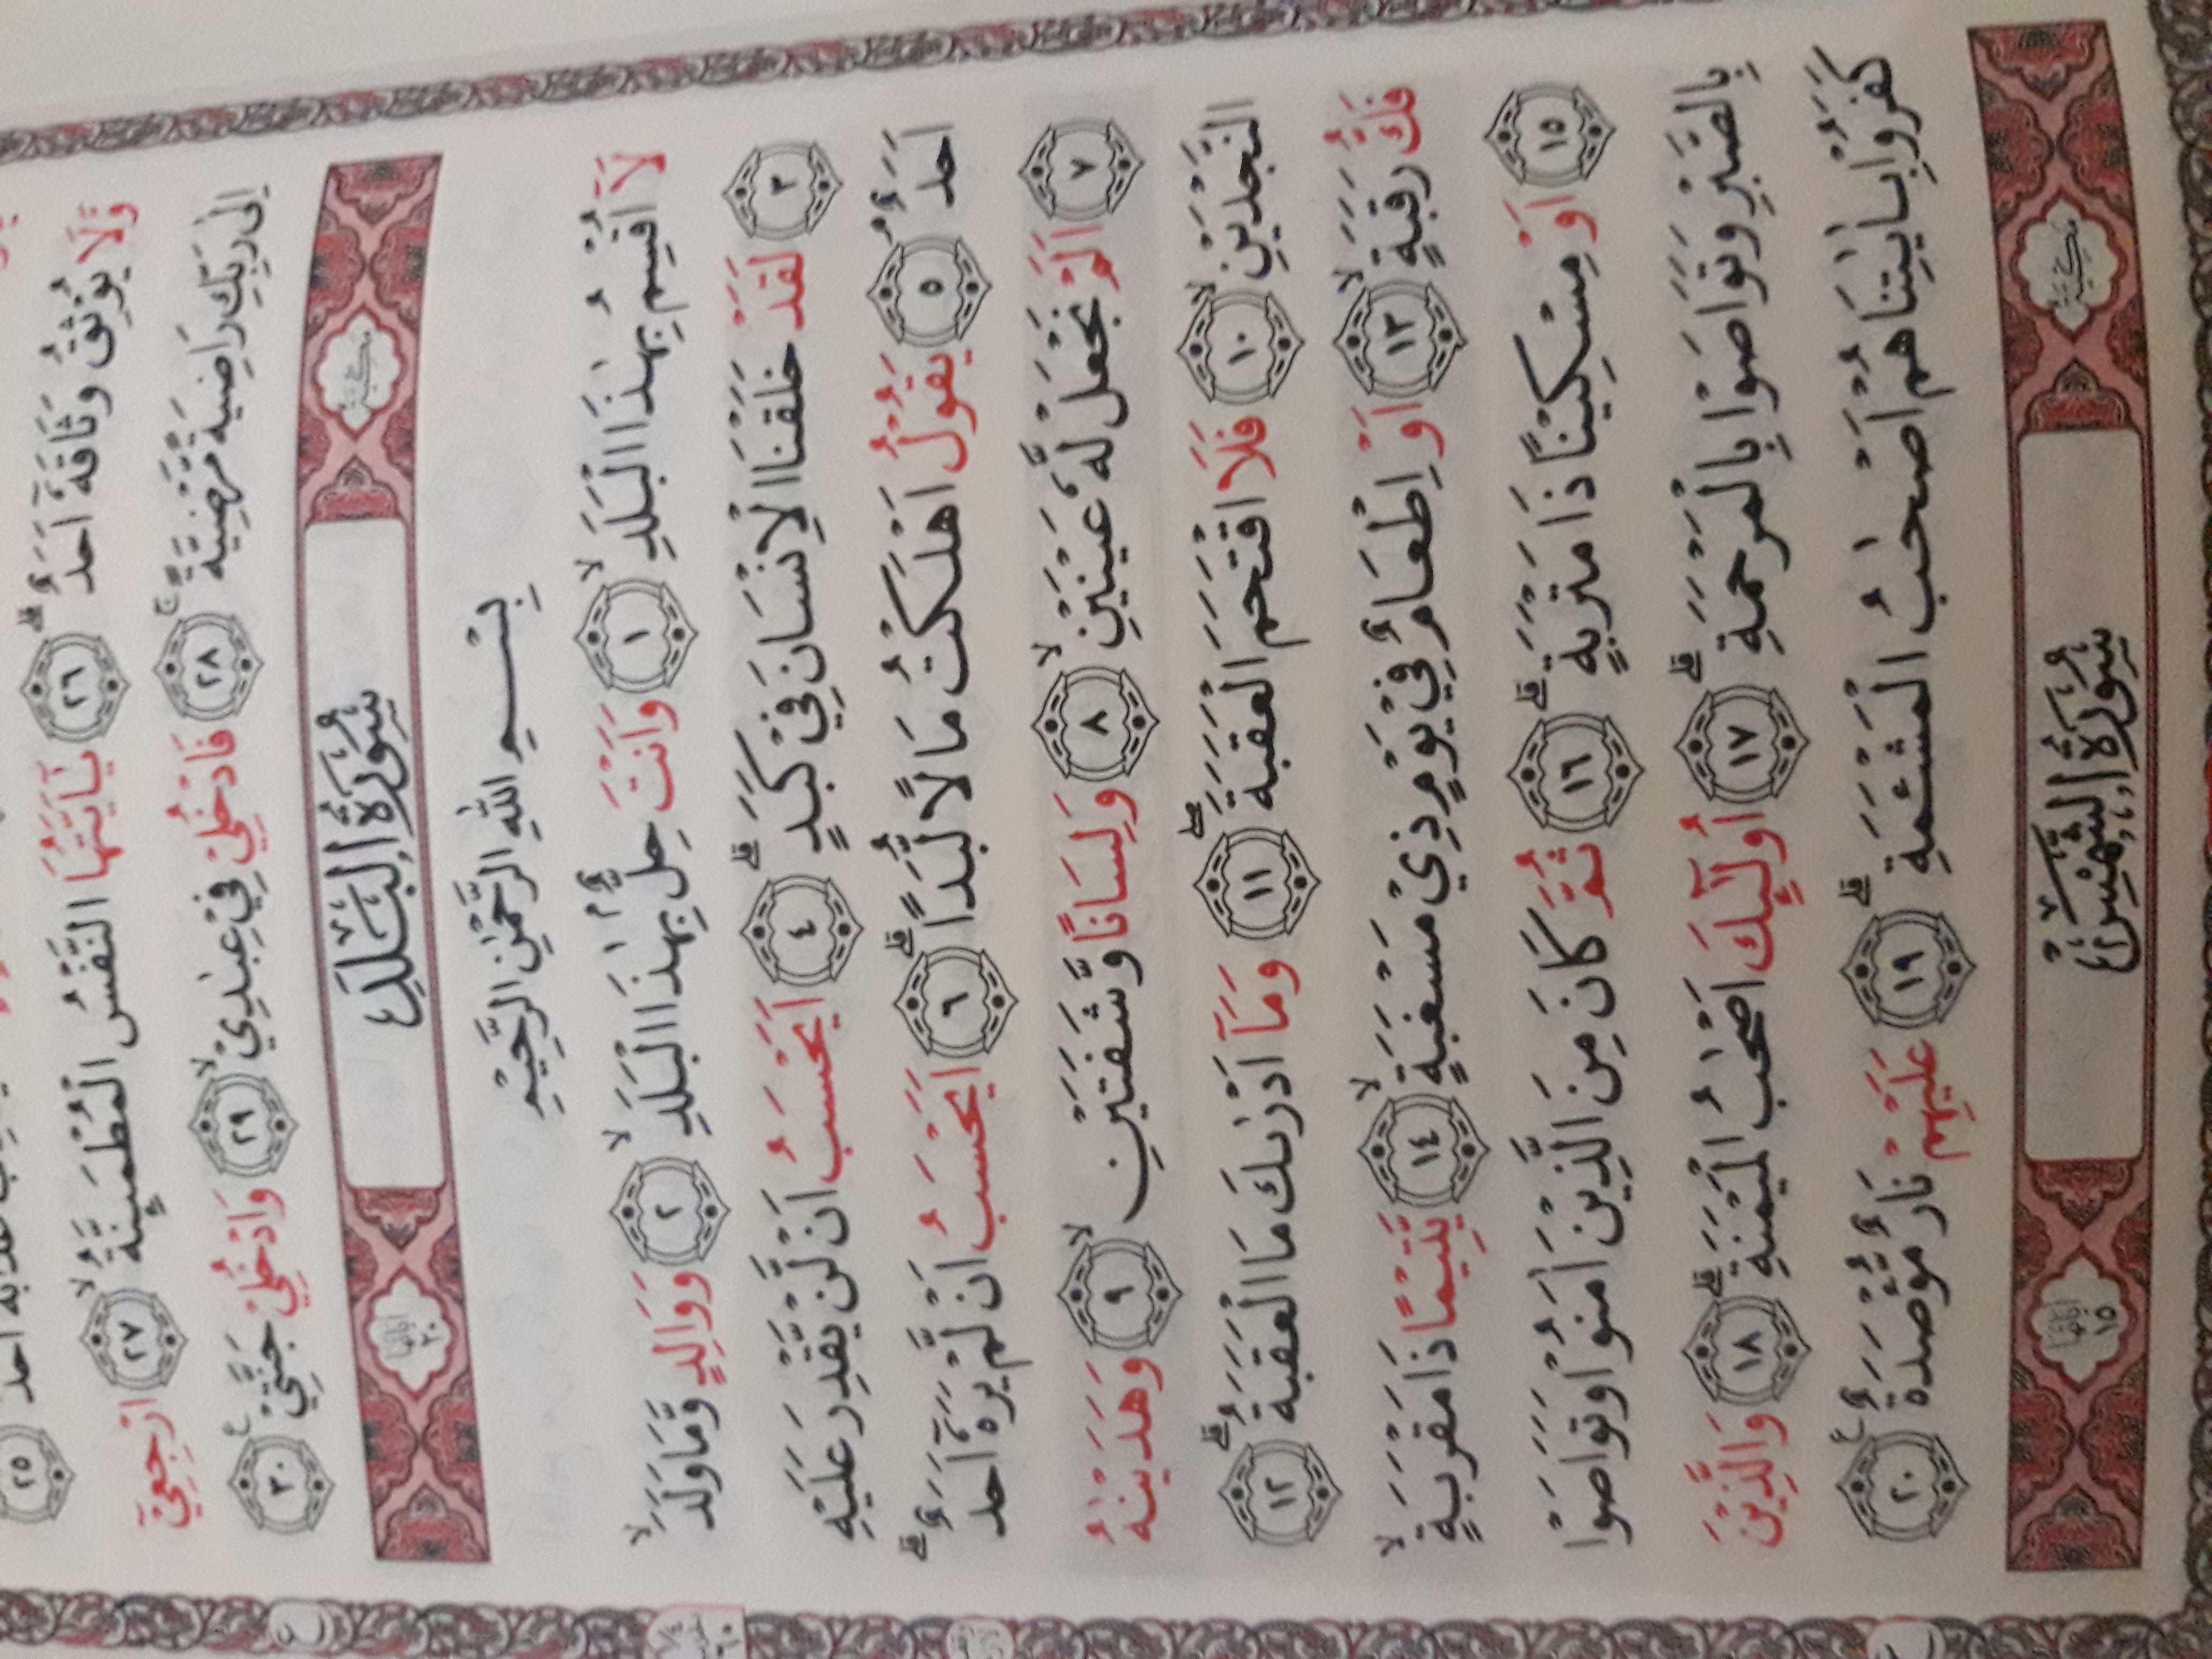 عَذَابَهٗٓ اَحَدٌ ٢٥
وَّلَا يُوْثِقُ وَثَاقَهٗٓ اَحَدٌ ۗ ٢٦ يٰٓاَيَّتُهَا النَّفْسُ الْمُطْمَىِٕنَّةُ ۙ ٢٧ ارْجِعِيْٓ
اِلٰى رَبِّكِ رَاضِيَةً مَّرْضِيَّةً ۚ ٢٨ فَادْخُلِيْ فِيْ عِبٰدِيْ ۙ ٢٩ وَادْخُلِيْ جَنَّتِيْ ࣖ ٣٠
مكية سُوْرَةُ الْبَلَدِ اٰياتها ٢٠
بِسْمِ اللّٰهِ الرَّحْمٰنِ الرَّحِيْمِ
لَآ اُقْسِمُ بِهٰذَا الْبَلَدِ ۙ ١ وَاَنْتَ حِلٌّ ۢ بِهٰذَا الْبَلَدِ ۙ ٢ وَوَالِدٍ وَّمَا وَلَدَ ۙ
٣ لَقَدْ خَلَقْنَا الْاِنْسَانَ فِيْ كَبَدٍ ۗ ٤ اَيَحْسَبُ اَنْ لَّنْ يَّقْدِرَ عَلَيْهِ
اَحَدٌ ۘ ٥ يَقُوْلُ اَهْلَكْتُ مَالًا لُّبَدًا ۗ ٦ اَيَحْسَبُ اَنْ لَّمْ يَرَهٗٓ اَحَدٌ ۗ
٧ اَلَمْ نَجْعَلْ لَّهٗ عَيْنَيْنِ ۙ ٨ وَلِسَانًا وَّشَفَتَيْنِ ۙ ٩ وَهَدَيْنٰهُ
النَّجْدَيْنِ ۙ ١٠ فَلَا اقْتَحَمَ الْعَقَبَةَ ۖ ١١ وَمَآ اَدْرٰىكَ مَا الْعَقَبَةُ ۗ ١٢
فَكُّ رَقَبَةٍ ۙ ١٣ اَوْ اِطْعَامٌ فِيْ يَوْمٍ ذِيْ مَسْغَبَةٍ ۙ ١٤ يَّتِيْمًا ذَا مَقْرَبَةٍ ۙ
١٥ اَوْ مِسْكِيْنًا ذَا مَتْرَبَةٍ ۗ ١٦ ثُمَّ كَانَ مِنَ الَّذِيْنَ اٰمَنُوْا وَتَوَاصَوْا
بِالصَّبْرِ وَتَوَاصَوْا بِالْمَرْحَمَةِ ۗ ١٧ اُولٰۤىِٕكَ اَصْحٰبُ الْمَيْمَنَةِ ۗ ١٨ وَالَّذِيْنَ
كَفَرُوْا بِاٰيٰتِنَا هُمْ اَصْحٰبُ الْمَشْـَٔمَةِ ۗ ١٩ عَلَيْهِمْ نَارٌ مُّؤْصَدَةٌ ࣖ ٢٠
مكية سُوْرَةُ الشَّمْسِ اٰياتها ١٥